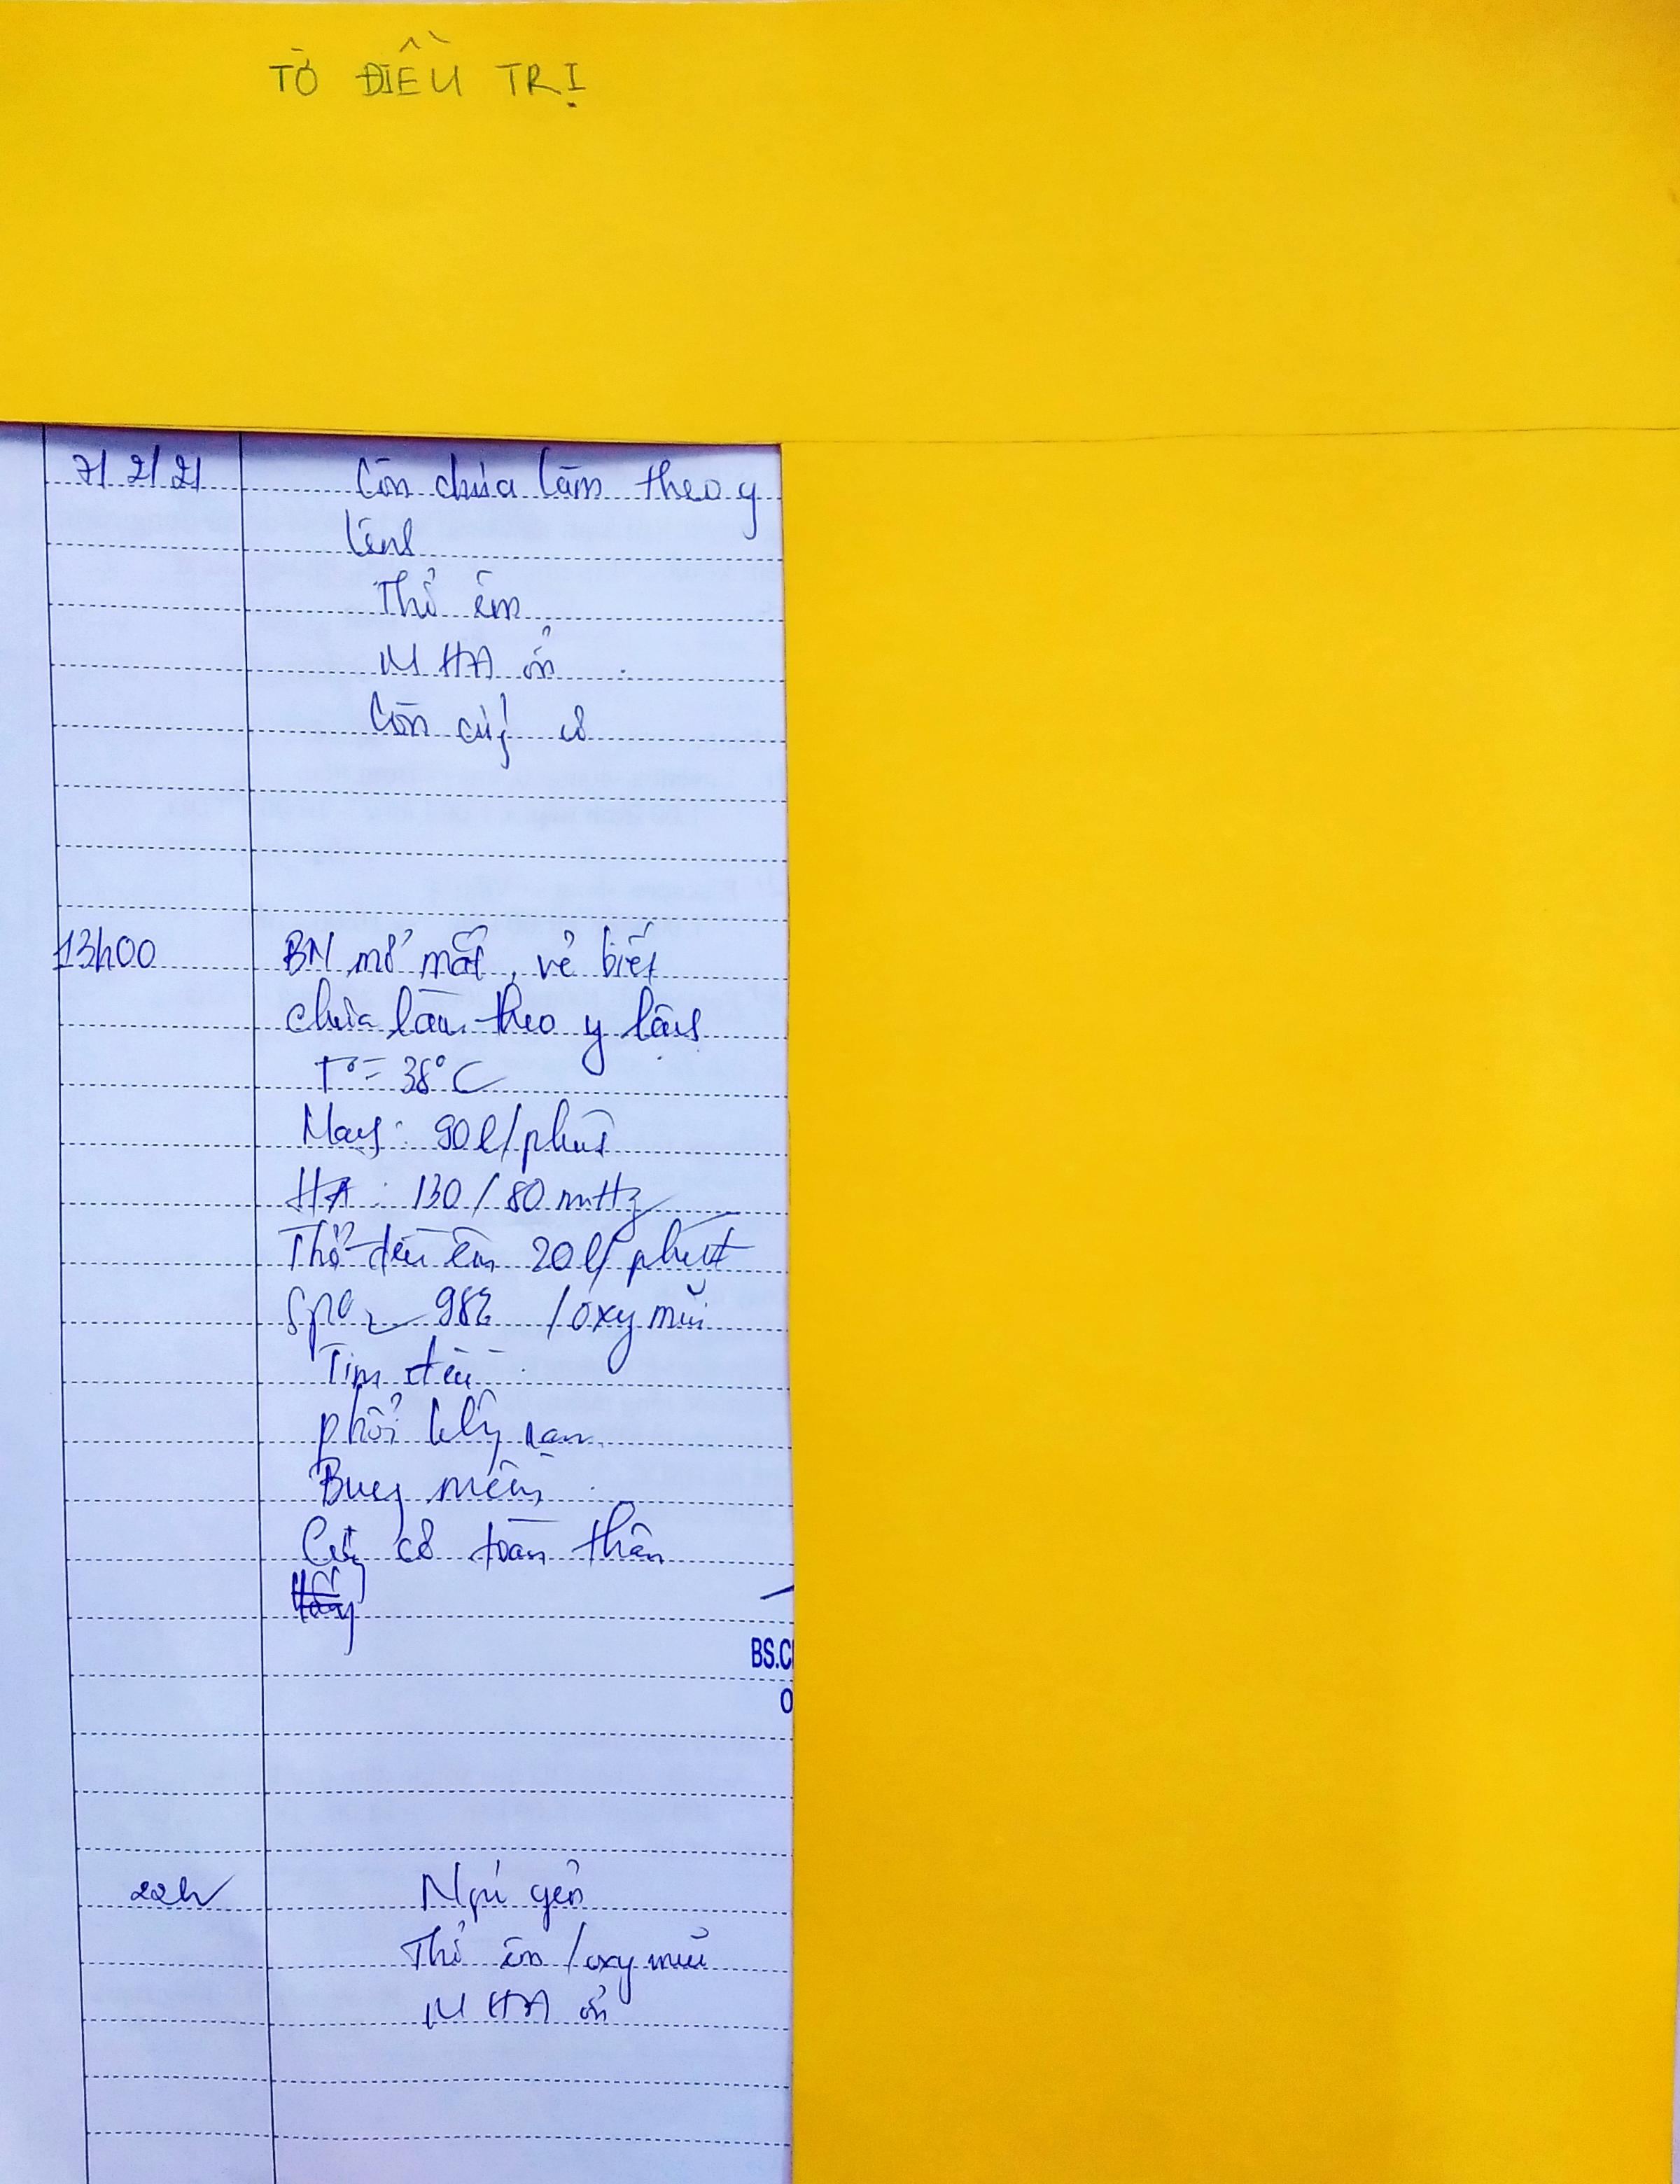 TỜ ĐIỀU TRỊ
7/2/21 Còn chưa làm theo y
lệnh
Thở êm
M HA ổn
Còn cứng cơ
13h00 BN mở mắt, vẻ biết
chưa làm theo y lệnh
T° = 38°C
Mạng: 90l/phút
HA: 130/80 mmHg
Thở đều êm 20l/phút
SpO2 98% /oxy mũi
Tim đều
phổi không ran
Bụng mềm
Cứng cơ toàn thân
BS.C
22h Ngủ yên
Thở êm /oxy mũi
M HA ổn